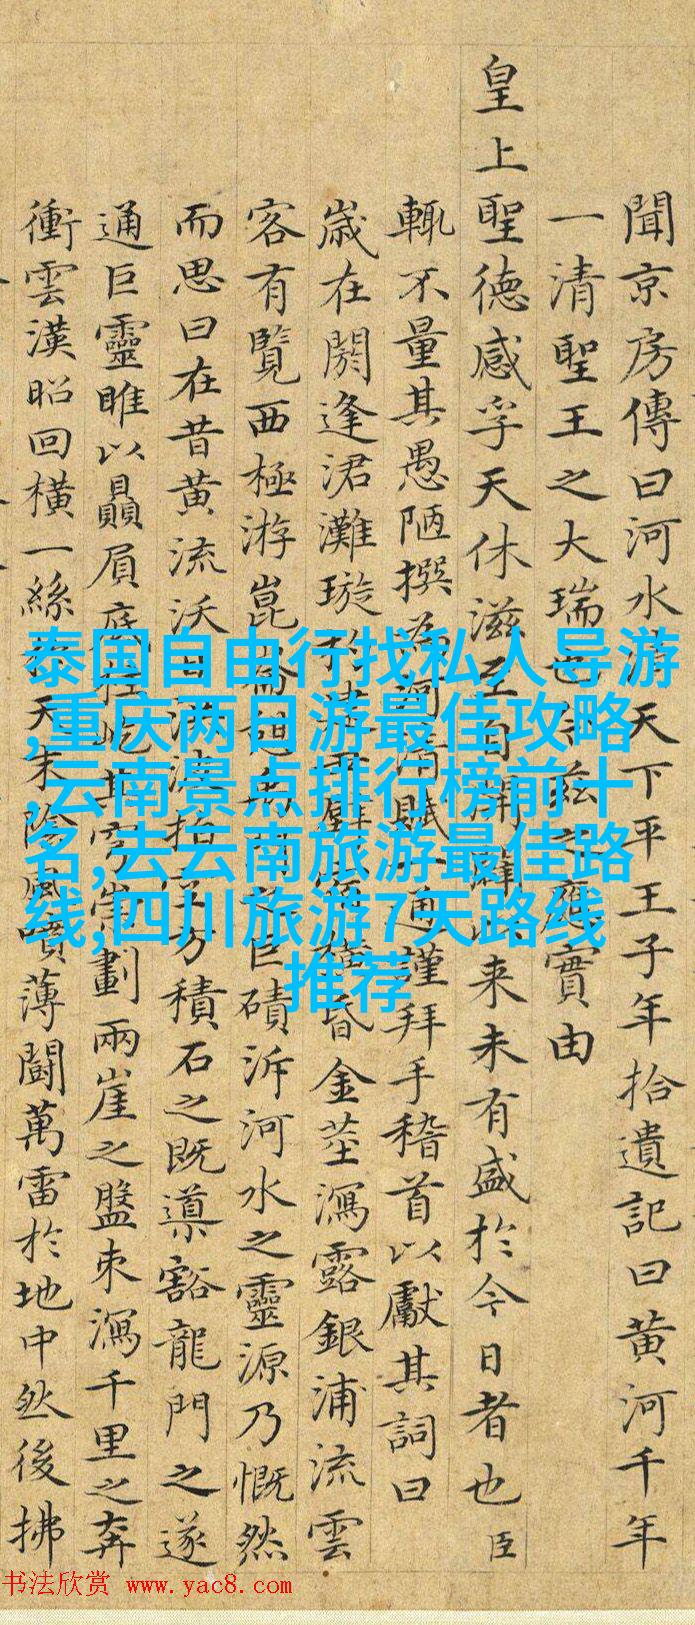 聞京房傳曰河水天下平王子年拾遺記曰黄河千年
一清聖王之大瑞也茲之應實由
皇上聖德感孚天休滋至自開闢以来未有盛於今日者也臣
輒不量其愚陋撰為河清賦一通謹拜手稽首以獻其詞曰
歳在閼逢涒灘璇杓建昏金莖瀉露銀浦流雲
客有覽西極游崑崙巨磧泝河水之靈源乃慨然
而思曰在昔黄流沃日拍方積石之既導豁龍門之遂
通巨靈雎以贔屓底柱屹其穹崇劃兩崖之盤束瀉千里之奔
衝雲漢昭回橫一絲天末陰風噴薄鬭萬雷於地中然後拂
泰国自由行找私人导游
,重庆两日游最佳攻略
,云南景点排行榜前十
名,去云南旅游最佳路
线,四川旅游7天路线
推荐
书法欣赏 www.yac8.com